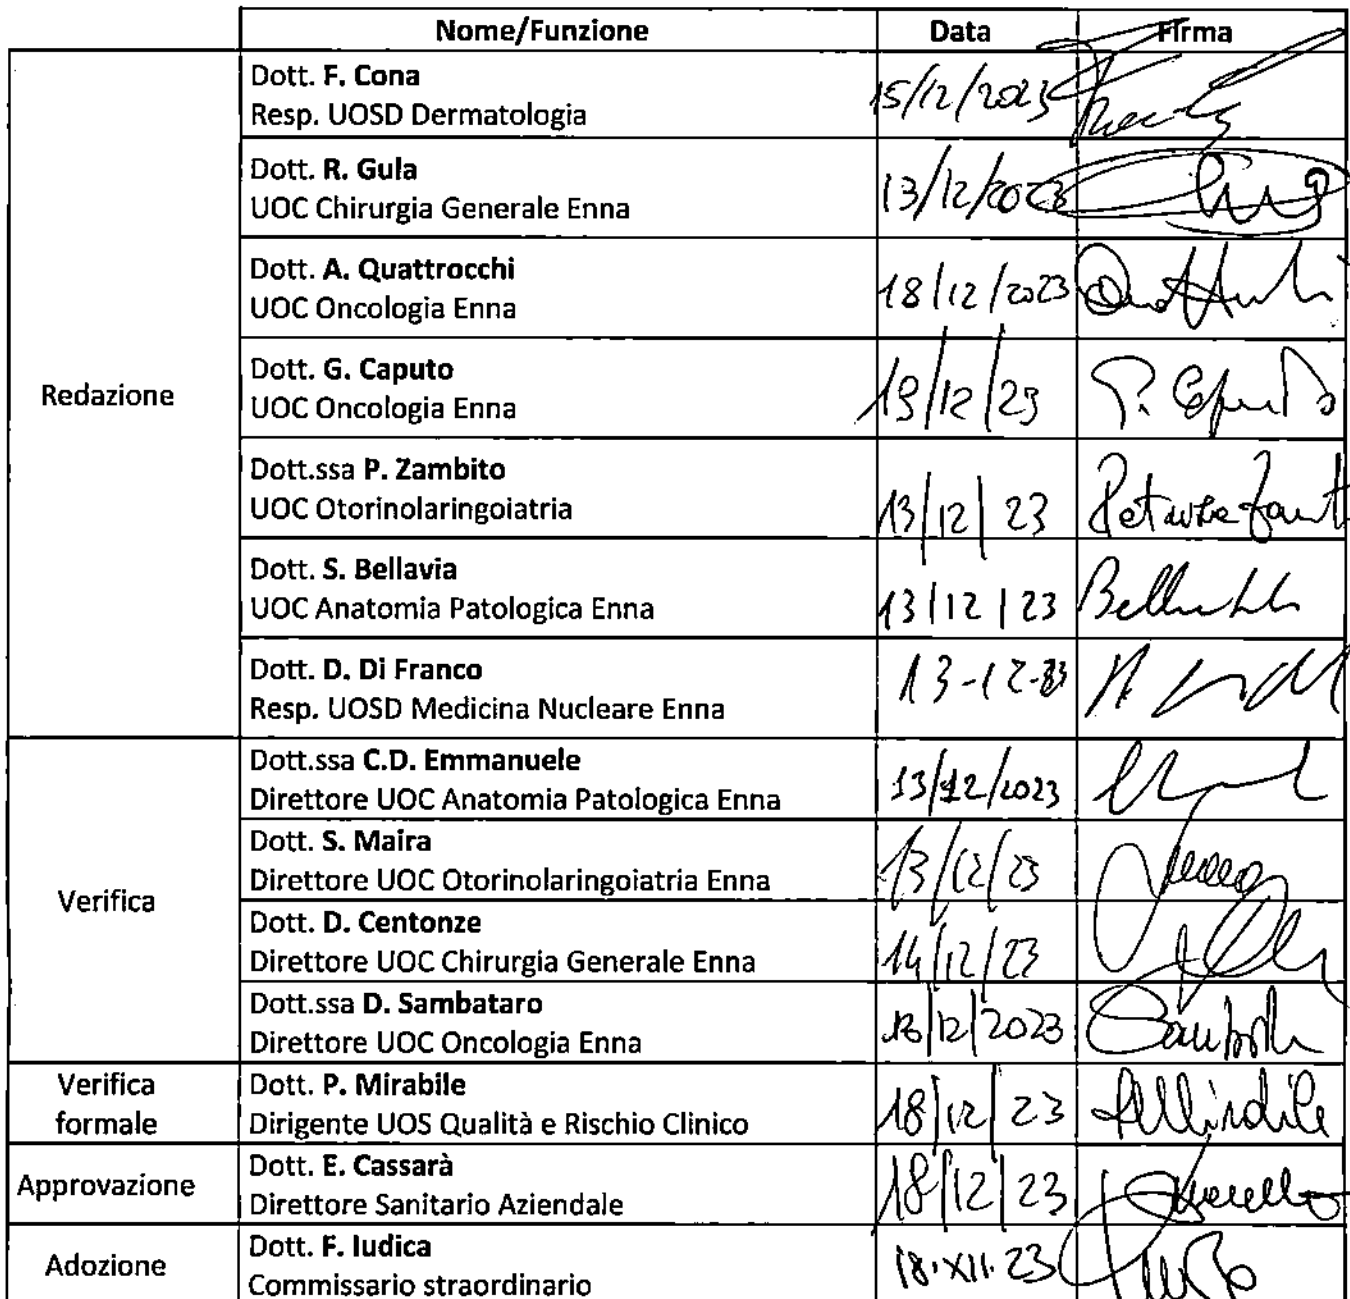 Nome/Funzione Data Firma
Redazione
Dott. F. Cona 15/12/2023
Resp. UOSD Dermatologia
Dott. R. Gula 13/12/2023
UOC Chirurgia Generale Enna
Dott. A. Quattrocchi 18/12/2023
UOC Oncologia Enna
Dott. G. Caputo
UOC Oncologia Enna G. Caputo
Dott.ssa P. Zambito
UOC Otorinolaringoiatria 13/12/23
Dott. S. Bellavia
UOC Anatomia Patologica Enna 13/12/23
Dott. D. Di Franco
Resp. UOSD Medicina Nucleare Enna
Verifica
Dott.ssa C.D. Emmanuele
Direttore UOC Anatomia Patologica Enna 13/12/2023
Dott. S. Maira
Direttore UOC Otorinolaringoiatria Enna 13/12/23
Dott. D. Centonze
Direttore UOC Chirurgia Generale Enna 14/12/23
Dott.ssa D. Sambataro
Direttore UOC Oncologia Enna
Verifica
formale
Dott. P. Mirabile
Dirigente UOS Qualità e Rischio Clinico 18/12/23
Approvazione
Dott. E. Cassarà
Direttore Sanitario Aziendale 18/12/23
Adozione
Dott. F. Iudica
Commissario straordinario 18.XII.23